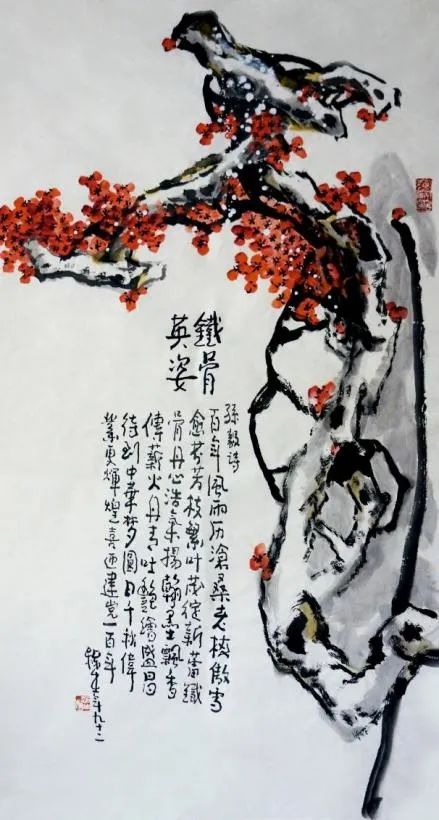 鐵骨
英姿
孫毅诗
百年风雨历滄桑老枝傲雪
愈芬芳枝繁叶茂绽新蕾鐵
骨丹心浩氣揚翰墨飘香
傳薪火丹青吐艷繪盛昌
待到中華梦圆日千秋偉
業更輝煌喜迎建党一百年
年九十二